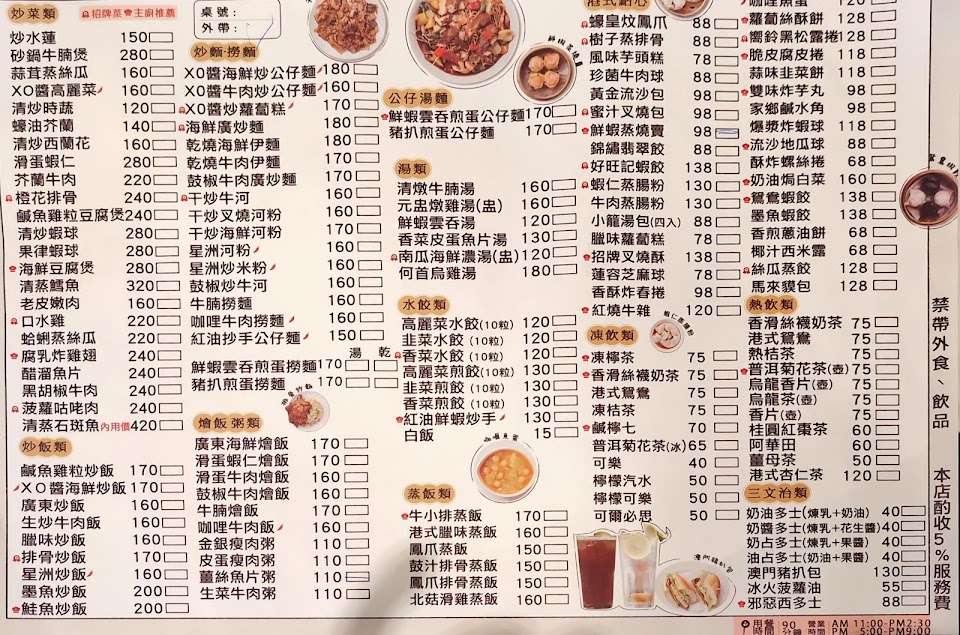 炒菜類 招牌菜 主廚推薦
桌號:
外帶:
炒水蓮 150
砂鍋牛腩煲 280
蒜茸蒸絲瓜 160
XO醬高麗菜 160
清炒時蔬 120
蠔油芥蘭 140
清炒西蘭花 160
滑蛋蝦仁 280
芥蘭牛肉 220
橙花排骨 240
鹹魚雞粒豆腐煲 240
清炒蝦球 280
果律蝦球 280
海鮮豆腐煲 280
清蒸鱈魚 320
老皮嫩肉 160
口水雞 220
蛤蜊蒸絲瓜 220
腐乳炸雞翅 240
醋溜魚片 240
黑胡椒牛肉 240
菠蘿咕咾肉 240
清蒸石斑魚內用價420
炒飯類
鹹魚雞粒炒飯 170
XO醬海鮮炒飯 170
廣東炒飯 160
生炒牛肉飯 160
臘味炒飯 160
排骨炒飯 170
星洲炒飯 160
墨魚炒飯 200
鮭魚炒飯 200
炒麵·撈麵
XO醬海鮮炒公仔麵 180
XO醬牛肉炒公仔麵 170
XO醬炒蘿蔔糕 170
海鮮廣炒麵 180
乾燒海鮮伊麵 180
乾燒牛肉伊麵 170
鼓椒牛肉廣炒麵 170
干炒牛河 160
干炒叉燒河粉 160
干炒海鮮河粉 170
星洲河粉 160
星洲炒米粉 160
鼓椒炒牛河 160
牛腩撈麵 160
咖哩牛肉撈麵 160
紅油抄手公仔麵 150
湯 乾
鮮蝦雲吞煎蛋撈麵 170
豬扒煎蛋撈麵 170
燴飯粥類
廣東海鮮燴飯 170
滑蛋蝦仁燴飯 170
滑蛋牛肉燴飯 160
鼓椒牛肉燴飯 160
牛腩燴飯 170
咖哩牛肉飯 160
金銀瘦肉粥 110
皮蛋瘦肉粥 110
薑絲魚片粥 110
生菜牛肉粥 110
公仔湯麵
鮮蝦雲吞煎蛋公仔麵 170
豬扒煎蛋公仔麵 170
湯類
清燉牛腩湯 160
元盅燉雞湯(盅) 160
鮮蝦雲吞湯 120
香菜皮蛋魚片湯 130
南瓜海鮮濃湯(盅) 120
何首烏雞湯 180
水餃類
高麗菜水餃(10粒) 120
韭菜水餃(10粒) 120
香菜水餃(10粒) 120
高麗菜煎餃(10粒) 130
韭菜煎餃(10粒) 130
香菜煎餃(10粒) 130
紅油鮮蝦炒手 130
白飯 15
蒸飯類
牛小排蒸飯 170
港式臘味蒸飯 160
鳳爪蒸飯 150
鼓汁排骨蒸飯 150
鳳爪排骨蒸飯 150
北菇滑雞蒸飯 160
港式點心
蠔皇炆鳳爪 88
樹子蒸排骨 88
風味芋頭糕 78
珍菌牛肉球 88
黃金流沙包 98
蜜汁叉燒包 98
鮮蝦蒸燒賣 98
錦繡翡翠餃 88
好旺記蝦餃 138
蝦仁蒸腸粉 130
牛肉蒸腸粉 130
小籠湯包(四入) 88
臘味蘿蔔糕 78
招牌叉燒酥 138
蓮容芝麻球 78
香酥炸春捲 98
紅燒牛雜 120
凍飲類
凍檸茶 75
香滑絲襪奶茶 75
港式鴛鴦 75
凍桔茶 75
鹹檸七 70
普洱菊花茶(冰) 65
可樂 40
檸檬汽水 50
檸檬可樂 50
可爾必思 50
蘿蔔絲酥餅 128
嚮鈴黑松露捲 128
脆皮腐皮捲 118
蒜味韭菜餅 128
雙味炸芋丸 98
家鄉鹹水角 98
爆漿炸蝦球 118
流沙地瓜球 88
酥炸螺絲捲 68
奶油焗白菜 160
鴛鴦蝦餃 138
墨魚蝦餃 138
香煎蔥油餅 68
椰汁西米露 68
絲瓜蒸餃 128
馬來貘包 128
熱飲類
香滑絲襪奶茶 75
港式鴛鴦 75
熱桔茶 75
普洱菊花茶(壺) 75
烏龍香片(壺) 75
烏龍茶(壺) 75
香片(壺) 75
桂圓紅棗茶 60
阿華田 60
薑母茶 50
港式杏仁茶 120
三文治類
奶油多士(煉乳+奶油) 40
奶醬多士(煉乳+花生醬) 40
奶占多士(煉乳+果醬) 40
油占多士(奶油+果醬) 40
澳門豬扒包 130
冰火菠蘿油 55
邪惡西多士 88
禁帶外食、飲品
本店酌收5%服務費
用餐時間 90分鐘 營業時間 AM 11:00-PM2:30
PM 5:00-PM9:00